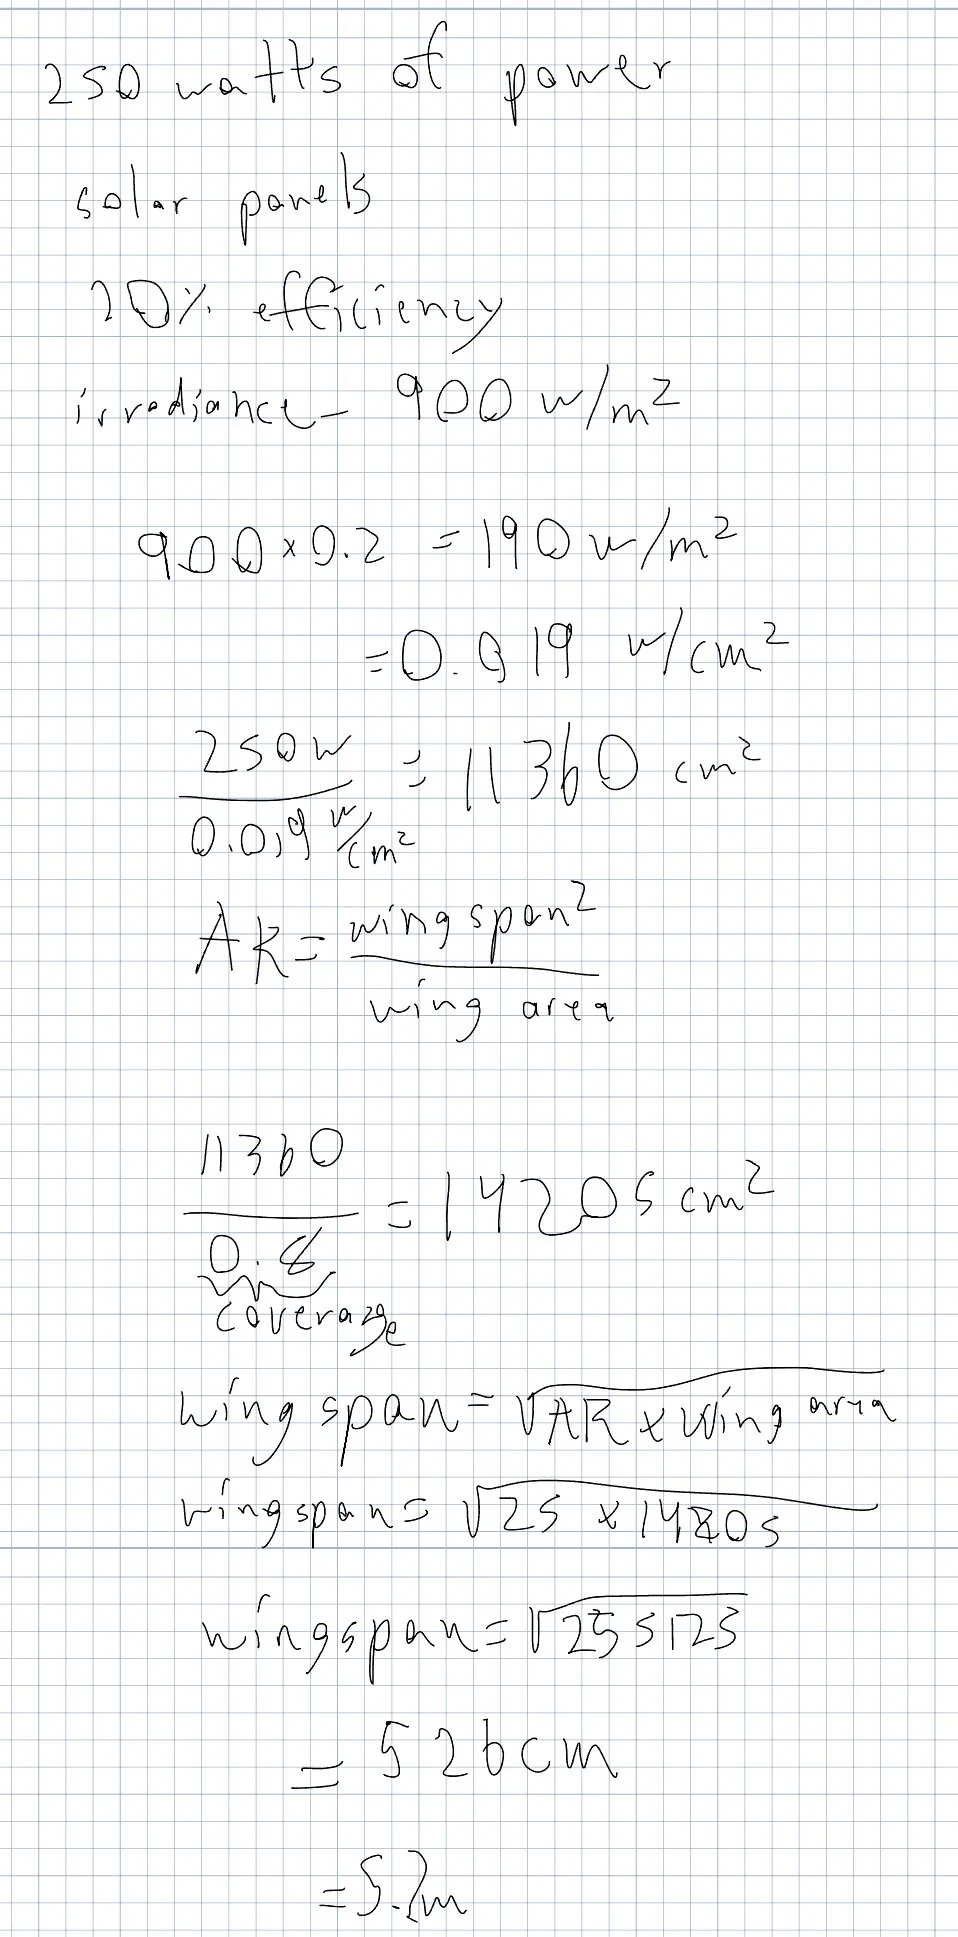 250 watts of power
solar panels
20% efficiency
irradiance - 900 w/m²
900 × 0.2 = 190 w/m²
= 0.019 w/cm²
250w / 0.019 w/cm² = 11360 cm²
AR = wing span² / wing area
11360 / 0.8 = 14205 cm²
coverage
wing span = √AR × wing area
wingspan = √25 × 14205
wingspan = √255125
= 526cm
= 5.2m